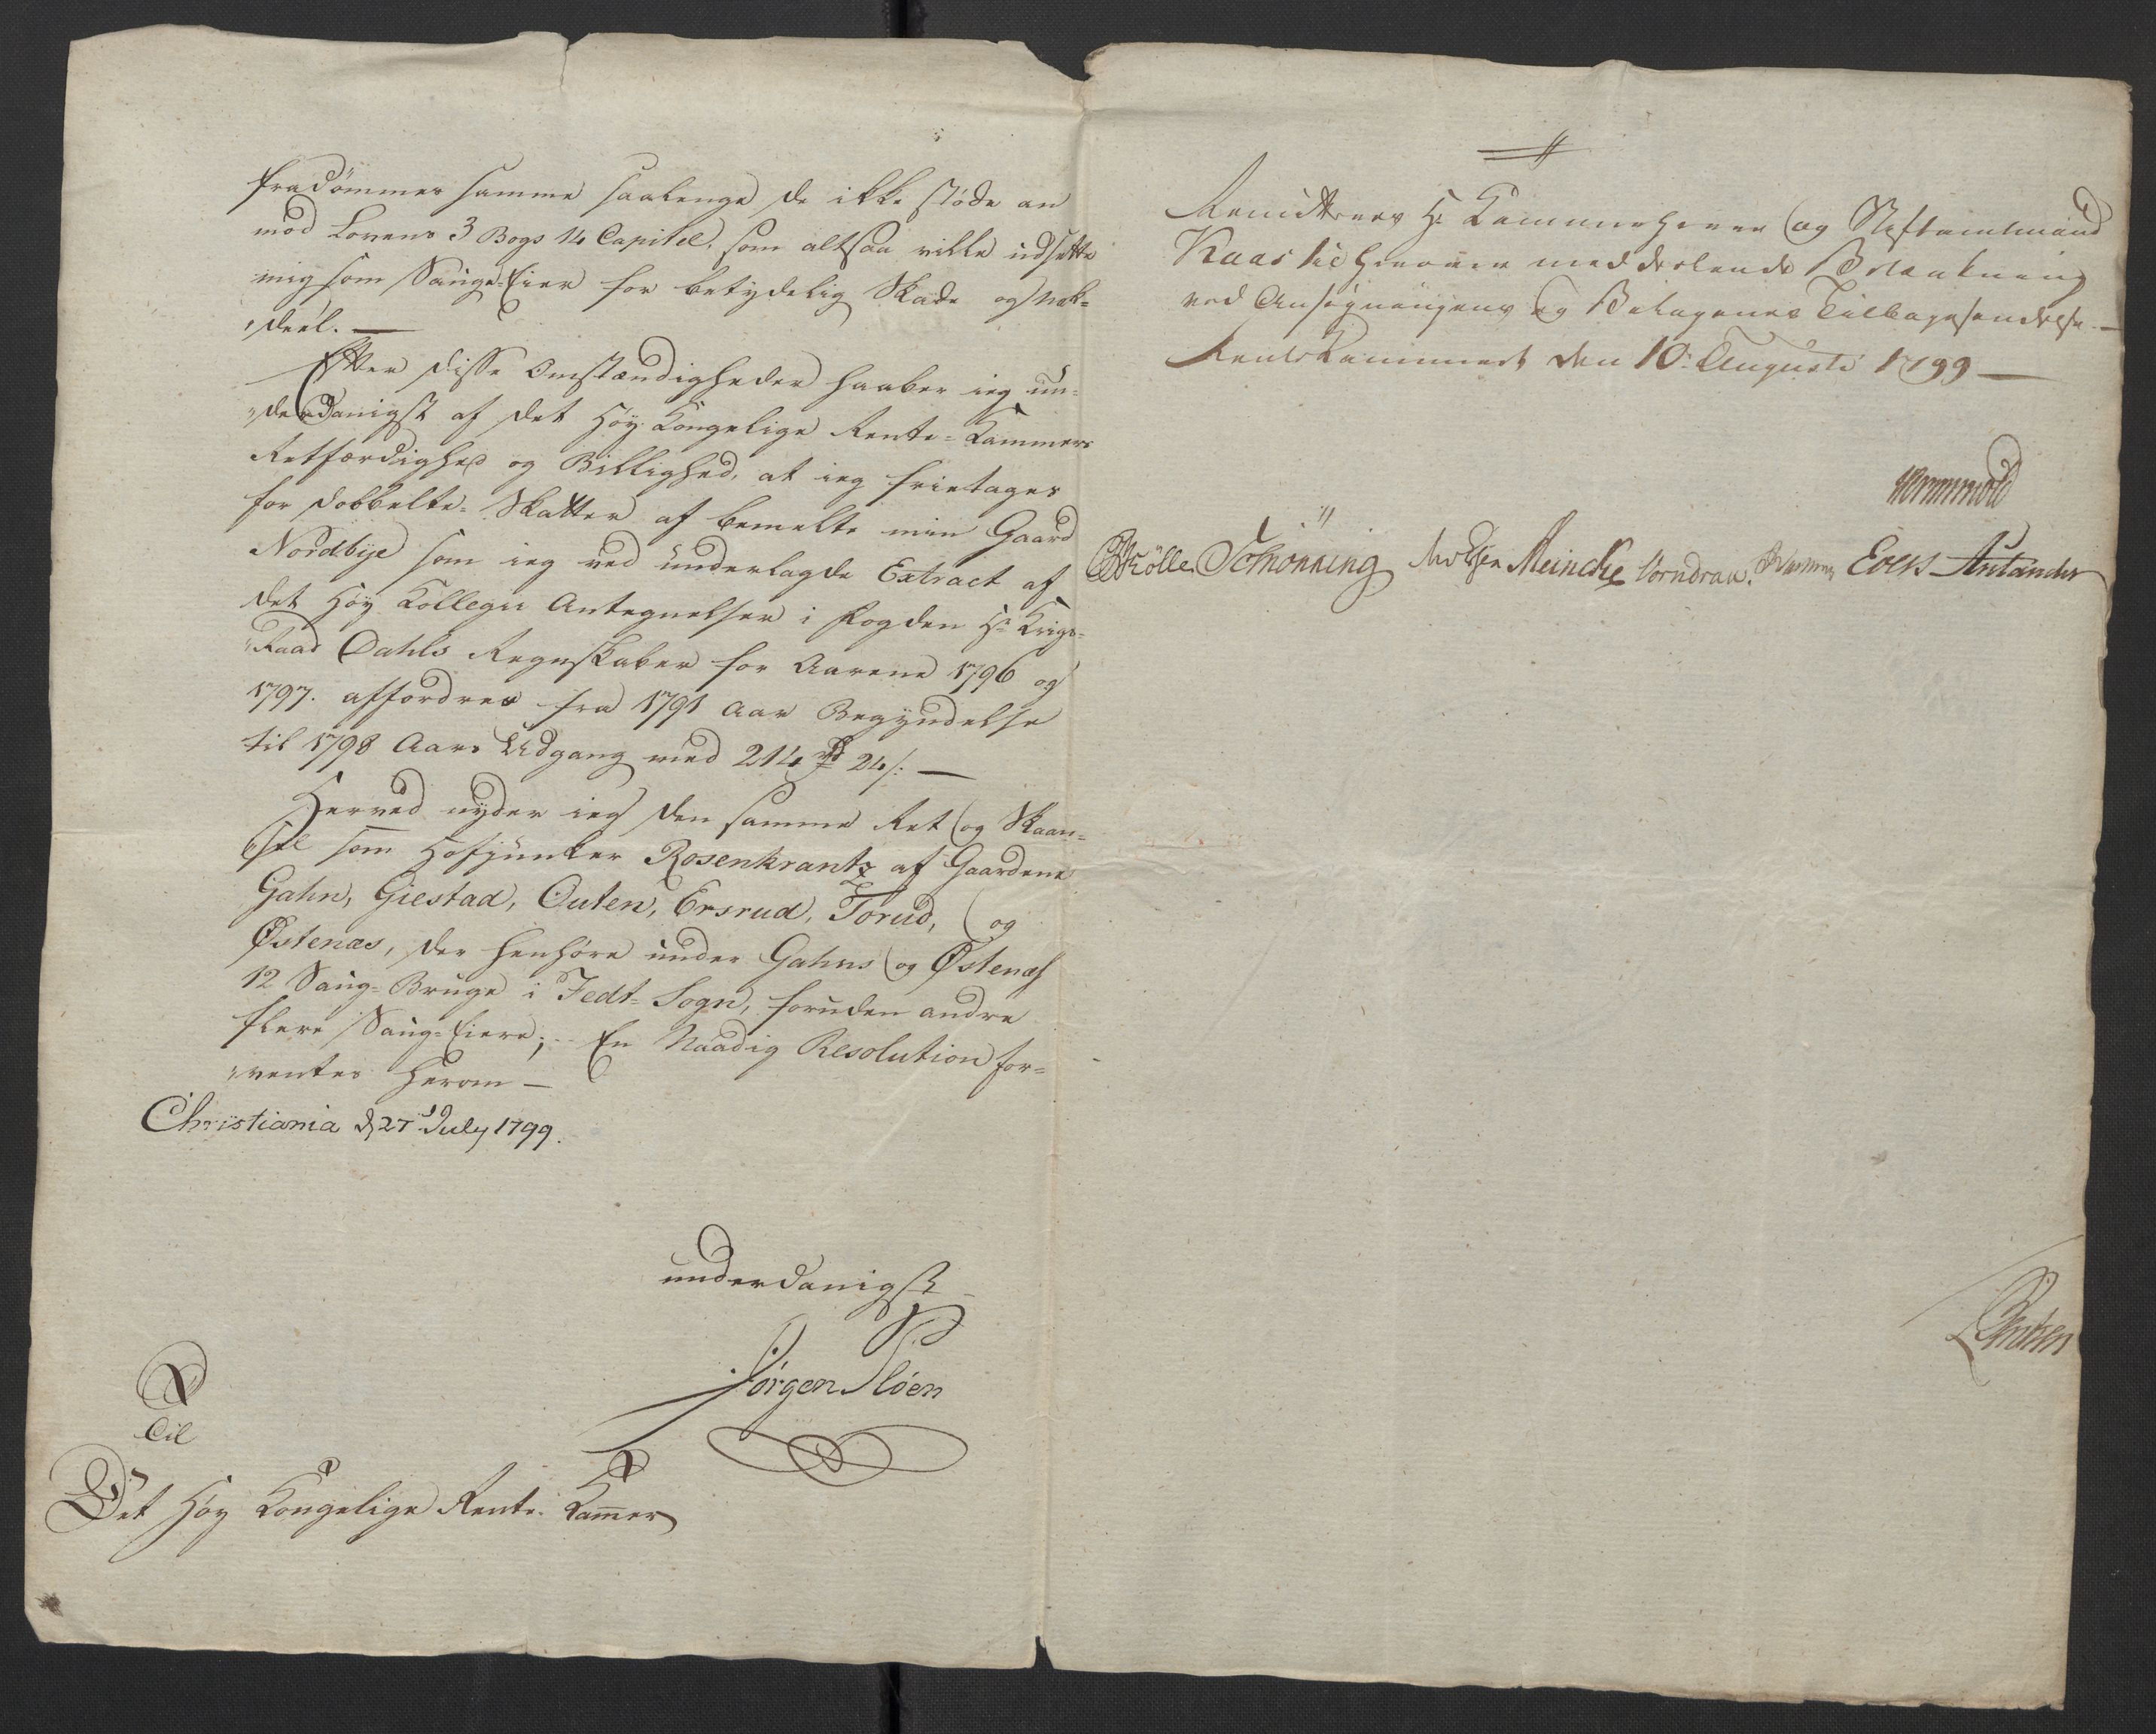 fradømmes samme saalenge de ikke støde an
mod Lovens 3 Bogs 14 Capitel, som altsaa ville udsætte
mig som Saug-Eier for betydelig Skade og Nak-
deel. —
Efter disse Omstændigheder haaber ieg un-
derdanigst af det Høy Kongelige Rente-Kammers
Retfærdighed og Billighed, at ieg frietages
for dobbelte Skatter af bemelte min Gaard
Nordbye som ieg ved underlagde Extract af
det Høy Collegii Antegnelser i Fogden Hr Krigs-
Raad Dahls Regnskaber for Aarene 1796 og
1797. affordres fra 1791 Aars Begyndelse
til 1798 Aars Udgang med 214 rd 24 s: —
Herved nyder ieg den samme Ret og Skaan-
sel som Hofjunker Rosenkrantz af Gaardene
Gahn, Giestad, Outen, Ersrud, Torud, og
Østenæs, der henhøre under Gahns og Østenæs
12 Saug-Bruge i Fedt-Sogn, foruden andre
flere Saug-Eiere; En Naadig Resolution for-
ventes herom —
Christiania d 27 July 1799.
underdanigst
Jørgen Pløen
Til
Det Høy Kongelige Rente-Kam̅er
Remitteres Hr Kammerherre og Stiftamtmand
Kaas til herover meddelende Betænkning
ved Ansøgningens og Bilagenes Tilbagesendelse. —
Rentekammeret den 10. Augusti 1799 —
Wormskiold
Schønning Meincke Vorndran